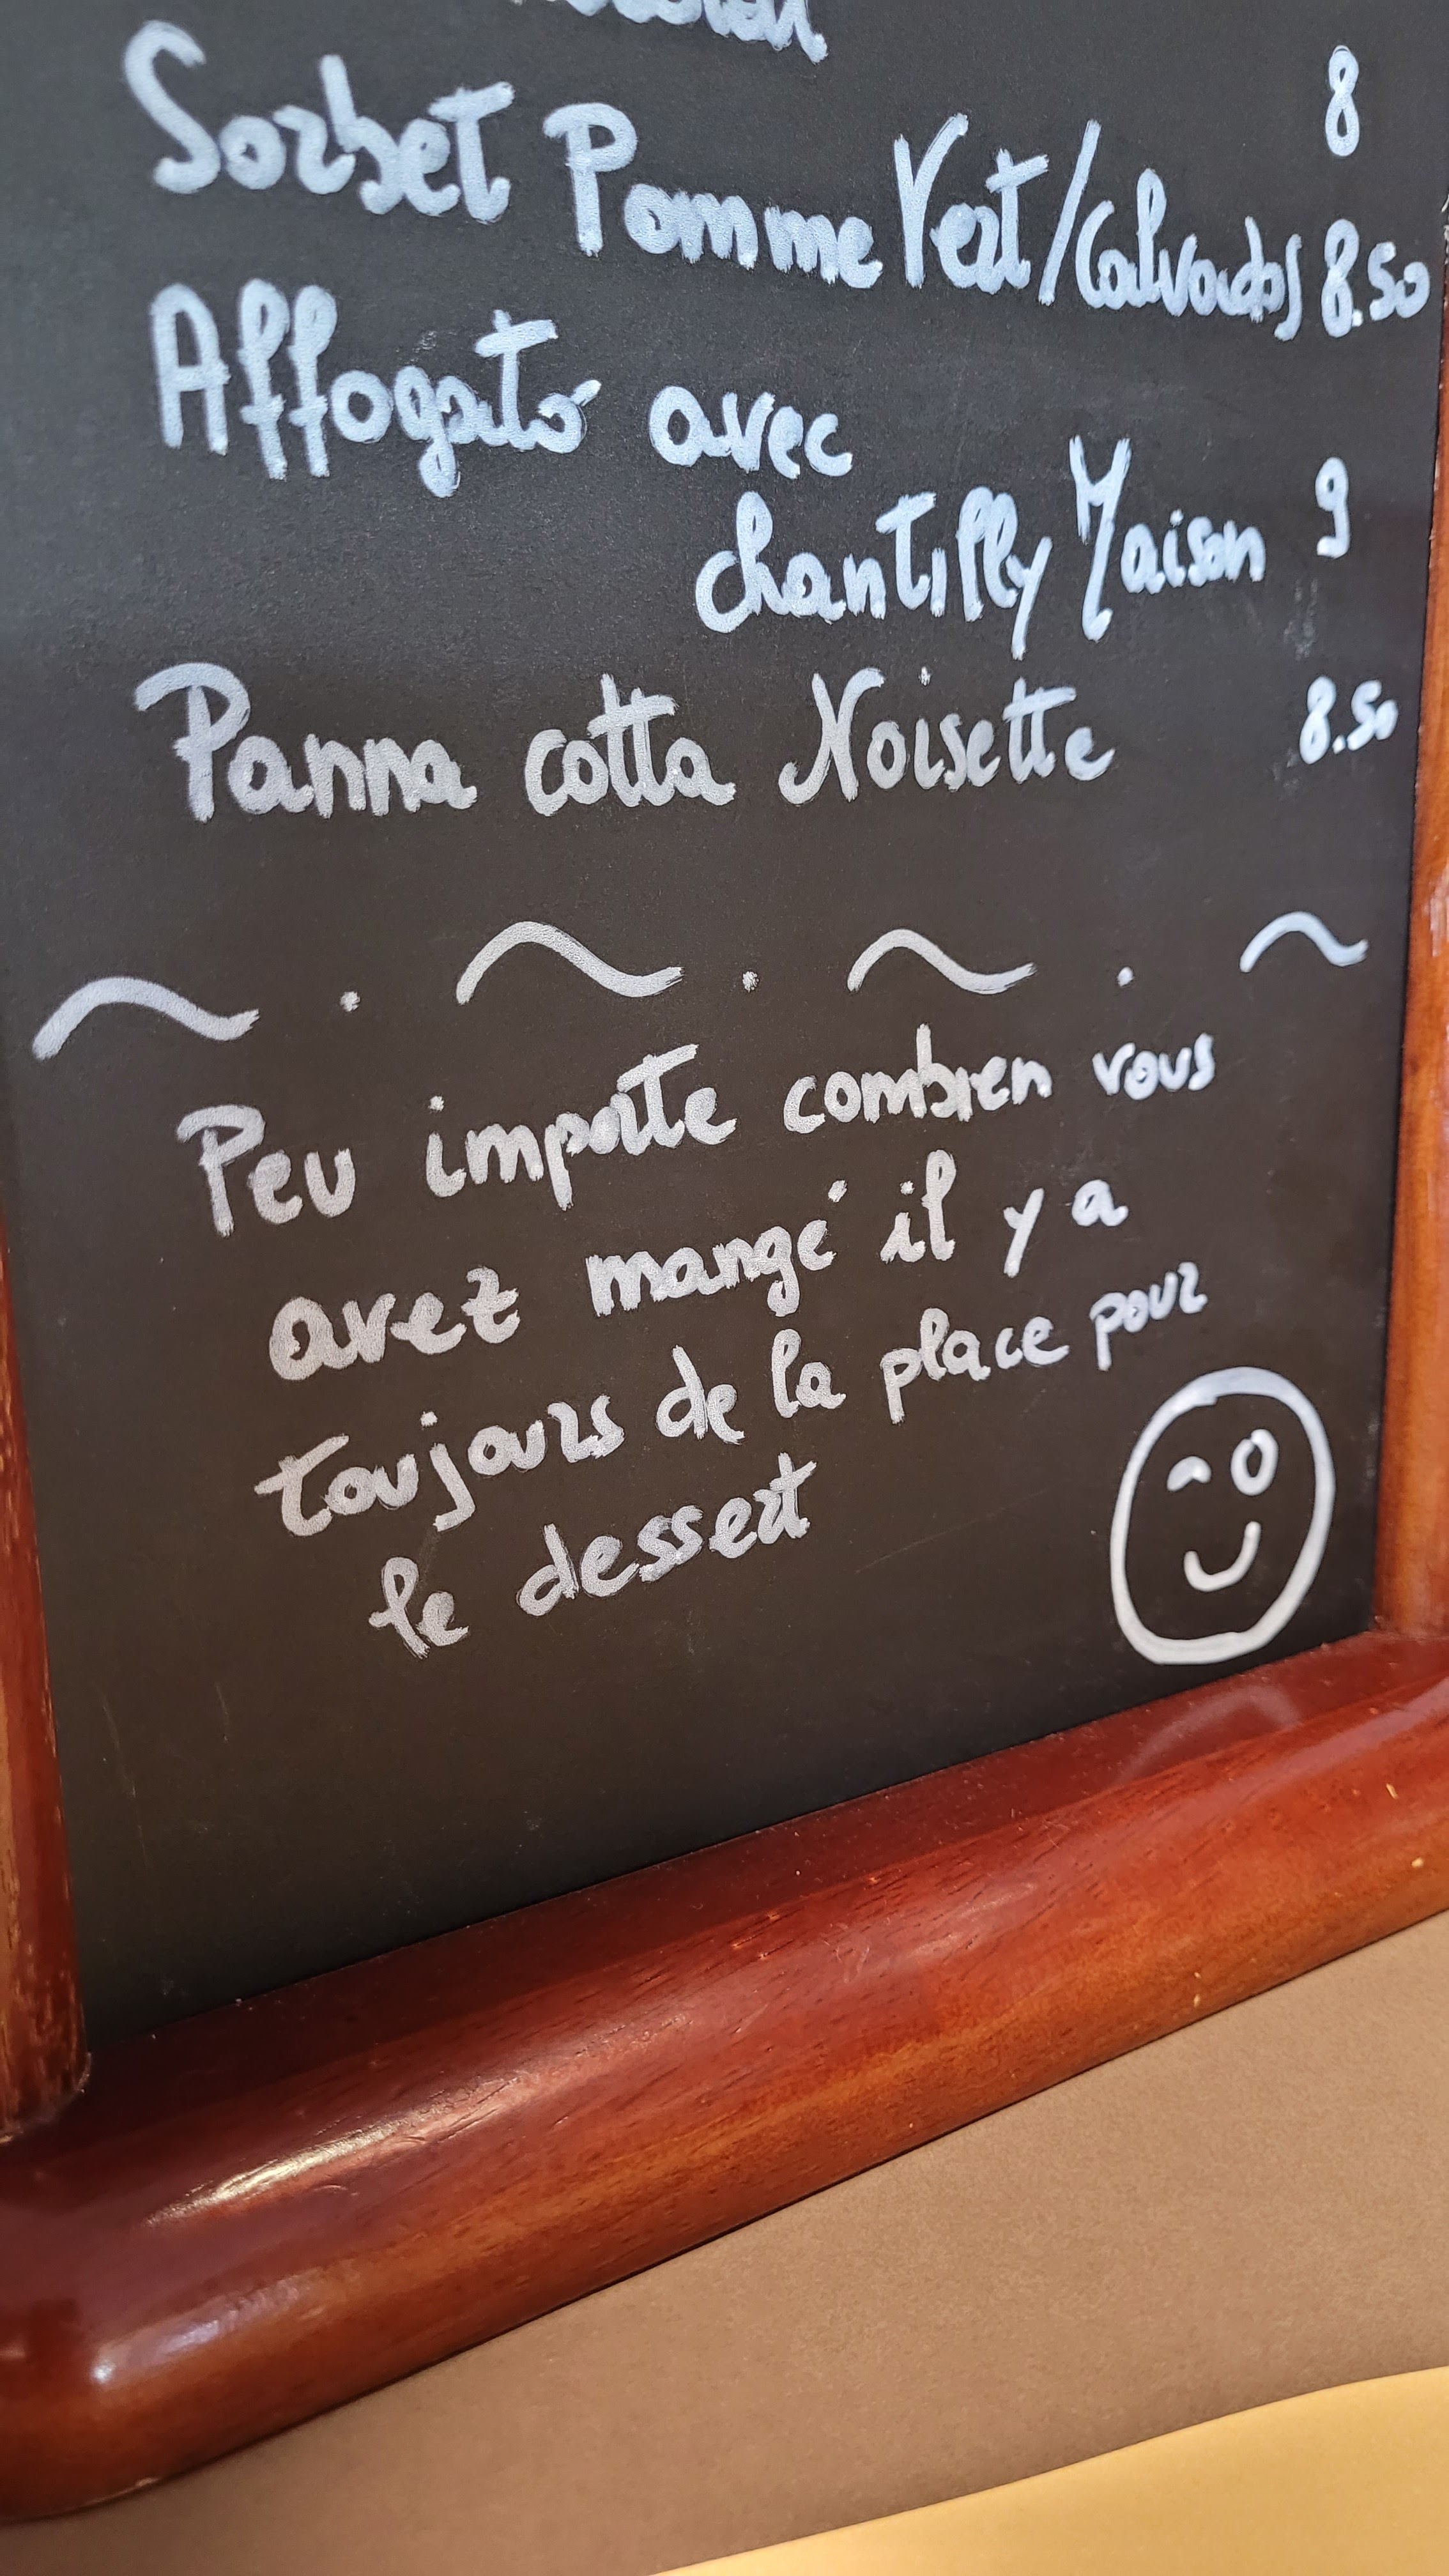 8
Sorbet Pomme Vert/Calvados 8.50
Affogato avec
chantilly Maison 9
Panna cotta Noisette 8.50
~ . ~ . ~ . ~
Peu importe combien vous
avez mangé il y a
toujours de la place pour
le dessert